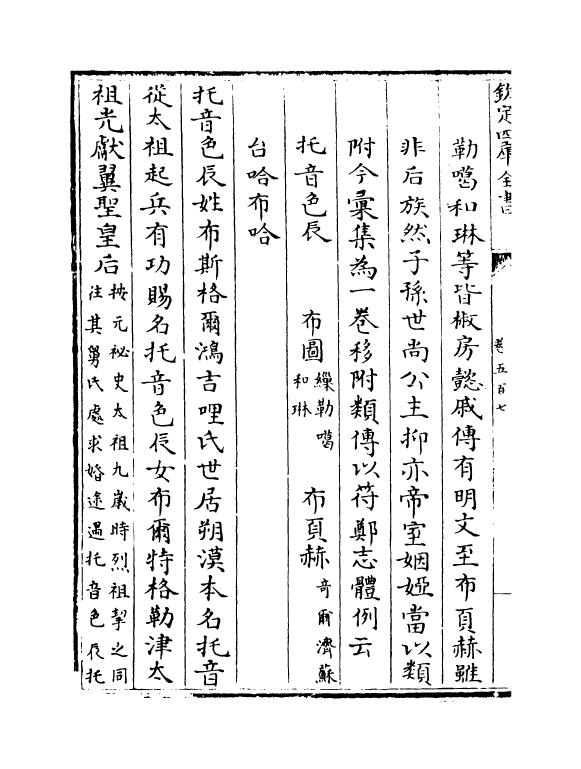 欽定四庫全書
卷五百七
勒噶和琳等皆椒房懿戚傳有明文至布頁赫雖
非后族然子孫世尚公主抑亦帝室姻婭當以類
附今彙集為一卷移附類傳以符鄭志體例云
托音色辰 布圖繅勒噶和琳 布頁赫奇爾濟蘇
台哈布哈
托音色辰姓布斯格爾鴻吉哩氏世居朔漠本名托音
從太祖起兵有功賜名托音色辰女布爾特格勒津太
祖光獻翼聖皇后按元祕史太祖九歲時烈祖挈之同往其舅氏處求婚途遇托音色辰托